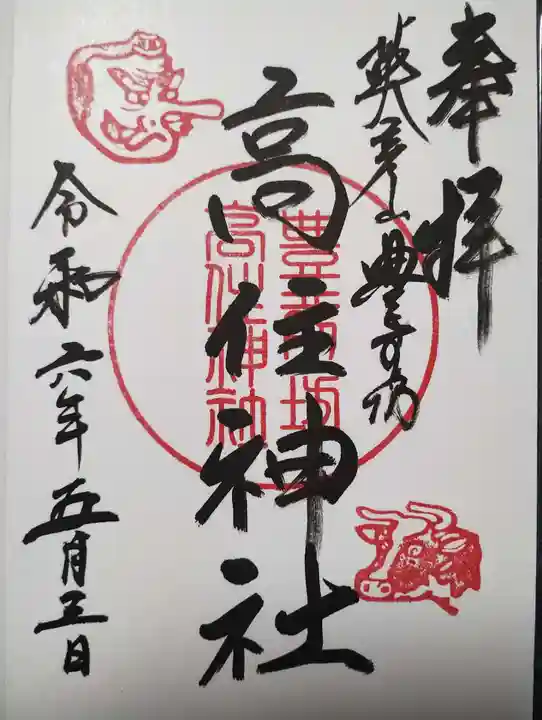 奉拝
英彦山豊前坊
高住神社
豊前坊
高住神社
令和六年五月三日